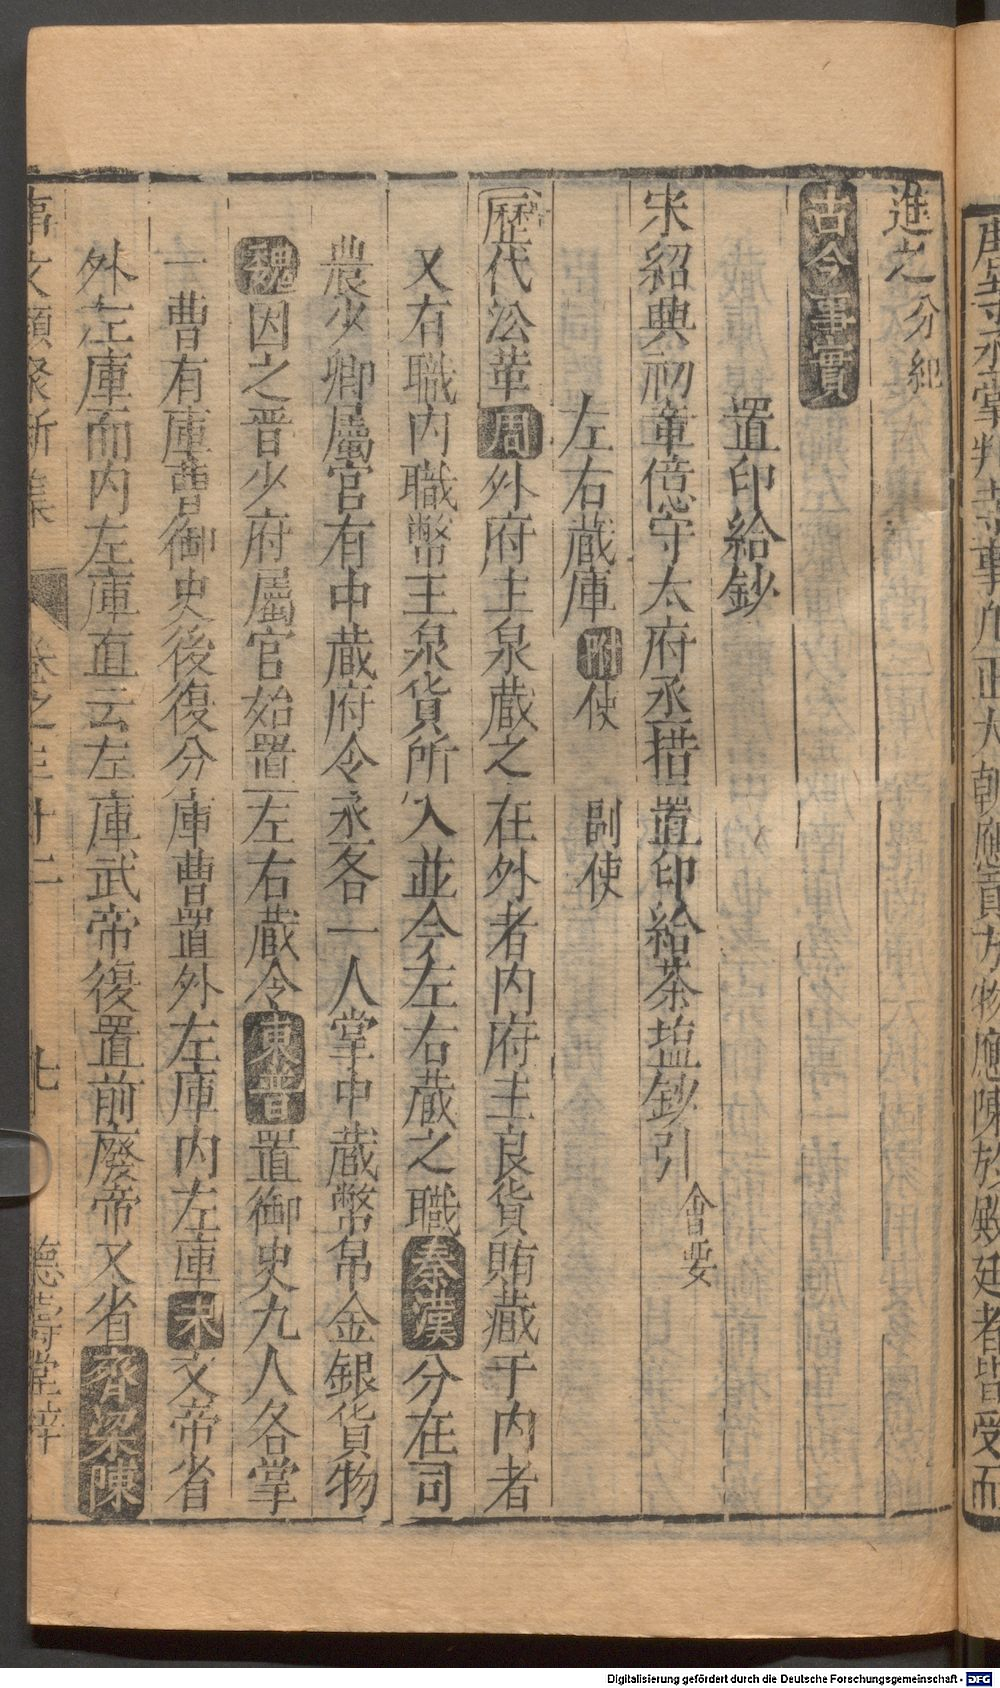 唐寺丞掌判寺事凡正大朝應貢方物應陳於殿廷者皆受而
進之分紀
古今事實
置印給鈔
宋紹興初章億守太府丞措置印給茶塩鈔引會要
左右蔵庫 附使 副使
歷代沿革 周外府主泉蔵之在外者内府主良貨賄蔵于内者
又有職内職幣主泉貨所入並今左右蔵之職秦漢分在司
農少卿屬官有中蔵府令丞各一人掌中蔵幣帛金銀貨物
魏因之晋少府屬官始置左右蔵令東晋置御史九人各掌
一曹有庫曹御史後復分庫曹置外左庫内左庫宋文帝省
外左庫而内左庫直云左庫武帝復置前廢帝又省齊梁陳
事文類聚新集 卷之三十二 七 德壽堂梓
Digitalisierung gefördert durch die Deutsche Forschungsgemeinschaft - DFG